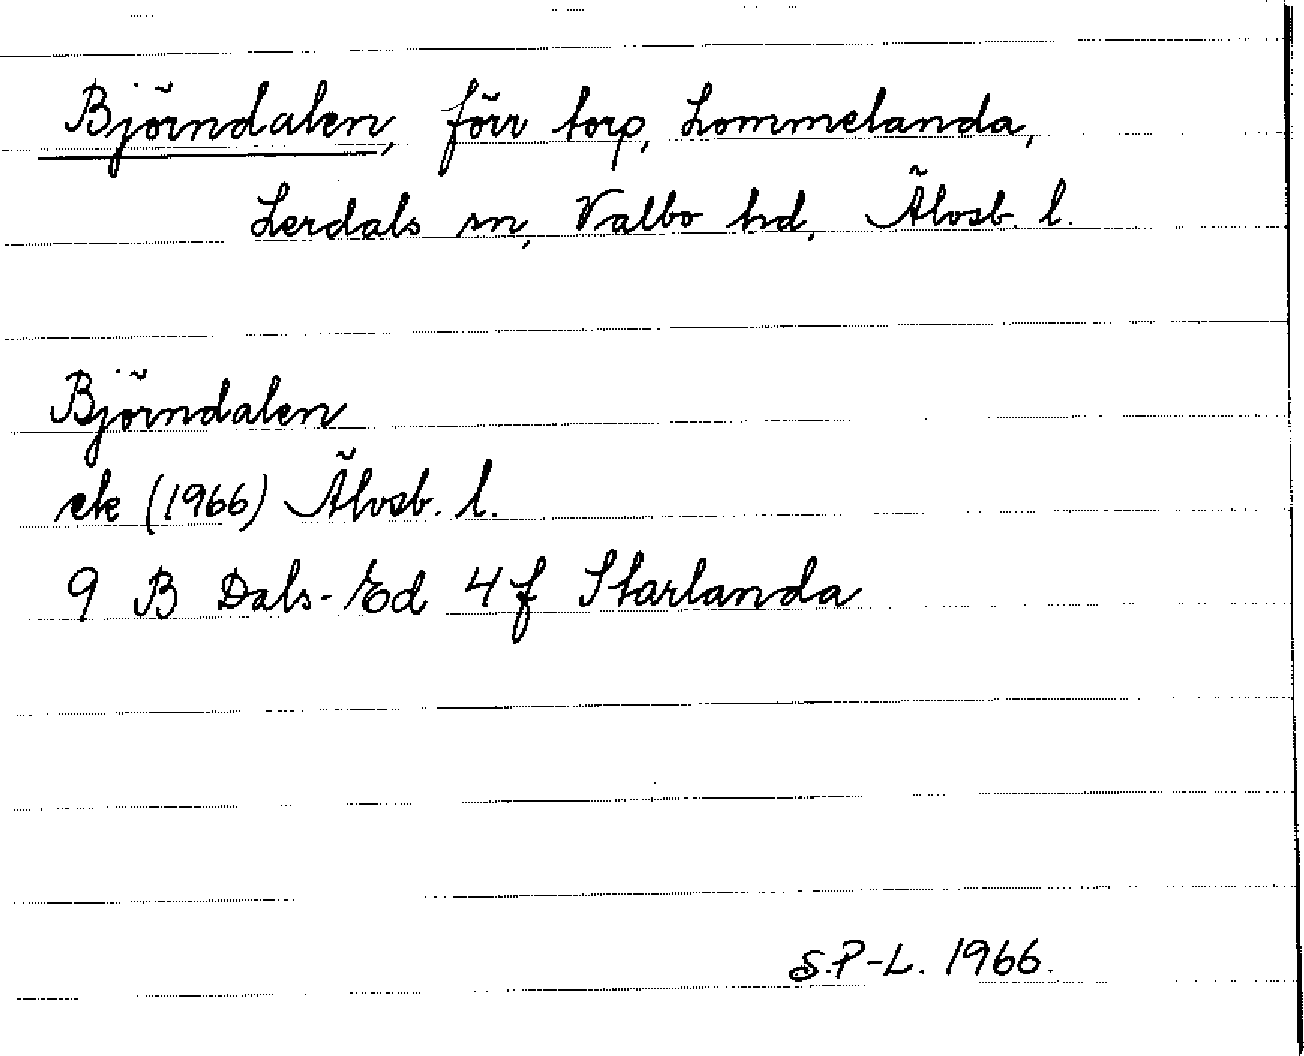 Björndalen, förr torp, Lommelanda,
Lerdals sn, Valbo hd, Älvsb. l.
Björndalen
ek (1966) Älvsb. l.
9 B Dals-Ed 4 f Starlanda
S.P-L. 1966.